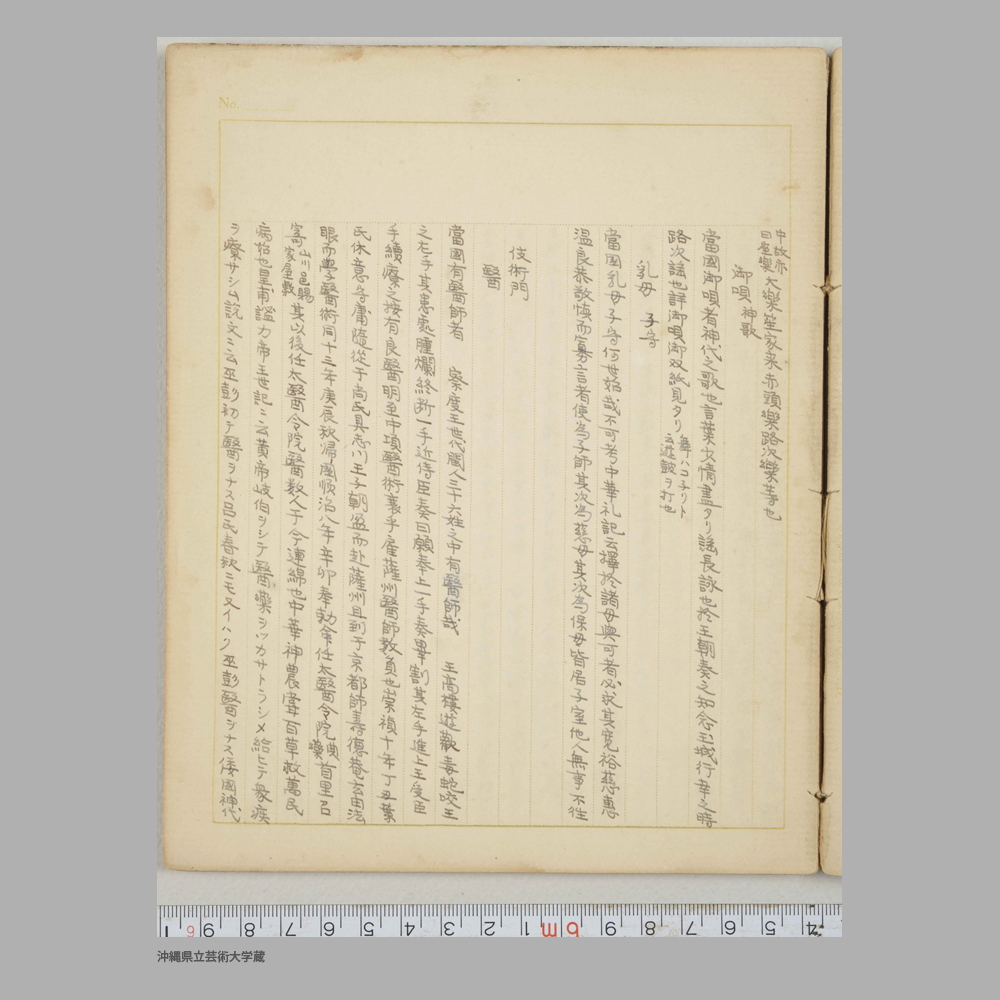 No.
中故亦
曰座樂 大樂笙家来赤頭樂路次樂等也
御唄 神歌
當國御唄者神代之歌也言葉少情盡タリ謡長詠也於王朝奏之知念玉城行幸之時
路次謡也詳御唄御双紙見タリ 舞ハコ子リト
云遊鼓ヲ打也
乳母 子守
當国乳母子守何世始哉不可考中華礼記云擇於諸母與可者必求其寛裕慈惠
温良恭敬慎而寡言者使為子師其次為慈母其次為保母皆居子室他人無事不往
伎術門
醫
當國有醫師者 察度王世代閩人三十六姓之中有醫師哉 王高樓遊歡毒蛇咬王
之左手其患處腫爛終断一手近侍臣奏曰願奉上一手奏畢割其左手進上王受臣
手續療之按有良醫明至中項醫術衰乎雇薩州醫師数員也崇禎十年丁丑葉
氏休意守庸隨從于尚氏具志川王子朝盈而赴薩州且到于京都師壽德菴玄由法
眼而學醫術同十三年庚辰秋帰國順治八年辛卯奉勅命任太醫令院 曲
首里召
寄 山川邑賜
家屋敷 其以後任太醫令院醫数人于今連綿也中華神農嘗百草救萬民
病始也皇甫謐カ帝王世記ニ云黄帝岐伯ヲシテ醫藥ヲツカサトラシメ給ヒテ衆疾
ヲ療サシム説文ニ云巫彭初テ醫ヲナス呂氏春秋ニモ又イハク巫彭醫ヲナス倭国神代
1 9 8 7 6 5 4 3 2 1 m 9 8 7 6 5 4
沖縄県立芸術大学蔵